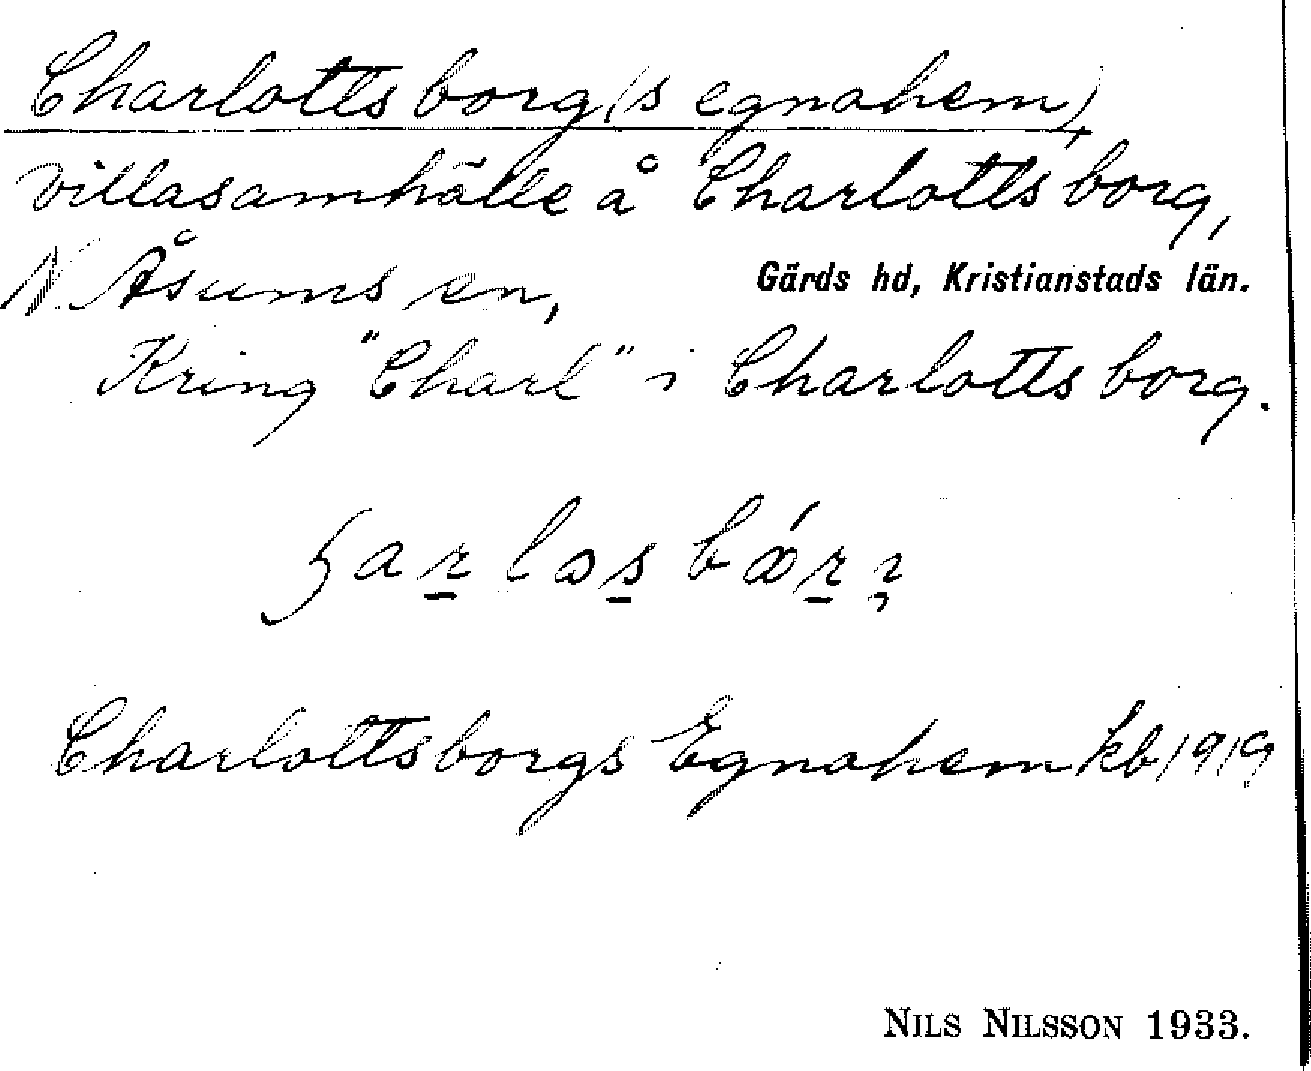 Charlottsborg(s egnahem),
villasamhälle å Charlottsborg,
N. Åsums sn, Gärds hd, Kristianstads län.
Kring "Charl" i Charlottsborg.
Charlottsborgs Egnahem kb 1919
NILS NILSSON 1933.